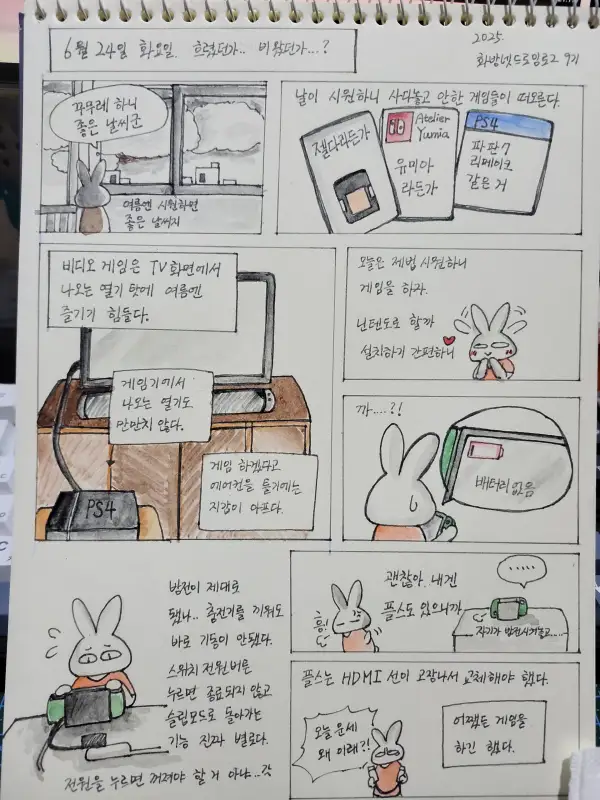 6월 24일 화요일. 흐렸던가.. 비왔던가...?
2025.
화방넷드로잉로그 9기
꾸무레 하니
좋은 날씨군
여름엔 시원하면
좋은 날씨지
날이 시원하니 사다놓고 안한 게임들이 떠오른다.
젤다라든가
Atelier
Yumia
유미아
라든가
PS4
파판7
리메이크
같은 거
비디오 게임은 TV화면에서
나오는 열기 탓에 여름엔
즐기기 힘들다.
게임기에서
나오는 열기도
만만치 않다.
게임 하겠다고
에어컨을 틀기에는
지갑이 아프다.
PS4
오늘은 제법 시원하니
게임을 하자.
닌텐도로 할까
설치하기 간편하니
까....?!
배터리없음
방전이 제대로
됐나.. 충전기를 끼워도
바로 기동이 안됐다.
스위치 전원버튼
누르면 종료되지 않고
슬립모드로 돌아가는
기능 진짜 별로다.
전원을 누르면 꺼져야 할 거 아냐..
괜찮아. 내겐
플스도 있으니까
흥!
.....
자기가 방전시켜놓고....
플스는 HDMI 선이 고장나서 교체해야 했다.
오늘 운세
왜 이래?!
어쨌든 게임을
하긴 했다.